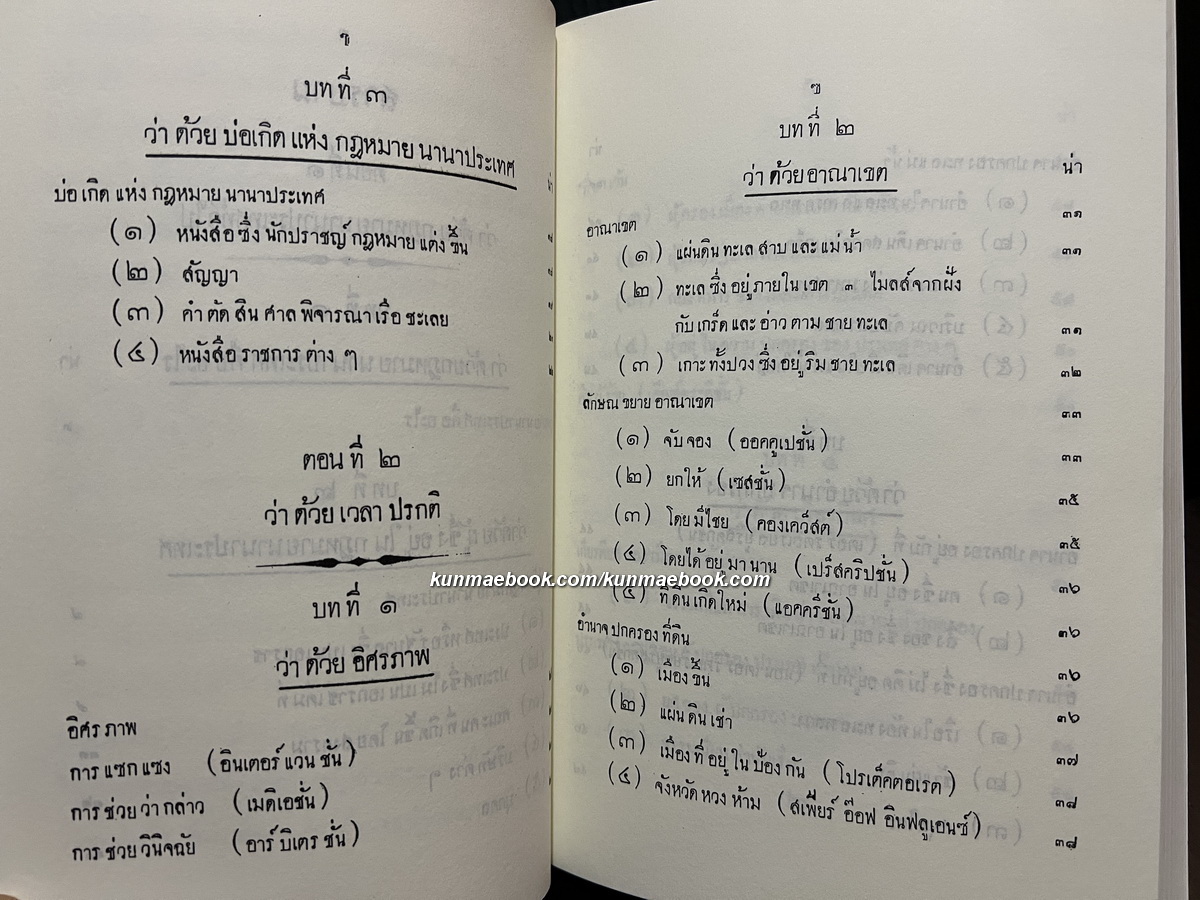 ข
บทที่ ๓
ว่า ด้วย บ่อเกิด แห่ง กฎหมาย นานาประเทศ
บ่อ เกิด แห่ง กฎหมาย นานาประเทศ
(๑) หนังสือ ซึ่ง นักปราชญ์ กฎหมาย แต่ง ขึ้น
(๒) สัญญา
(๓) คำ ตัด สิน ศาล พิจารณา เรือ ชะเลย
(๔) หนังสือ ราชการ ต่าง ๆ
ตอน ที่ ๒
ว่า ด้วย เวลา ปรกติ
บทที่ ๑
ว่า ด้วย อิศรภาพ
อิศร ภาพ
การ แซก แซง (อินเตอร์ แวน ชั่น)
การ ช่วย ว่า กล่าว (เมดิเอชั่น)
การ ช่วย วินิจฉัย (อาร์ บิเตร ชั่น)
ฃ
บทที่ ๒
ว่า ด้วย อาณาเขต น่า
อาณาเขต ๓๑
(๑) แผ่นดิน ทะเล สาบ และ แม่น้ำ ๓๑
(๒) ทะเล ซึ่ง อยู่ ภายใน เขต ๓ ไมลล์ จากฝั่ง
กับ เกร็ด และ อ่าว ตาม ชาย ทะเล ๓๑
(๓) เกาะ ทั้งปวง ซึ่ง อยู่ ริม ชาย ทะเล ๓๒
ลักษณ ขยาย อาณาเขต ๓๓
(๑) จับ จอง (ออคคูเปชั่น) ๓๓
(๒) ยกให้ (เซสชั่น) ๓๕
(๓) โดย มีไชย (คองเคว็สต์) ๓๕
(๔) โดยได้ อยู่ มา นาน (เปร็สคริปชั่น) ๓๖
(๕) ที่ดิน เกิดใหม่ (แอคครีชั่น) ๓๖
อำนาจ ปกครอง ที่ดิน ๓๖
(๑) เมือง ขึ้น ๓๖
(๒) แผ่น ดิน เช่า ๓๗
(๓) เมือง ที่ อยู่ ใน ป้อง กัน (โปรเต็คตอเรต) ๓๘
(๔) จังหวัด หวง ห้าม (สเฟียร์ อ๊อฟ อินฟลูเอนซ์) ๓๘
kunmaebook.com/kunmaebook.com